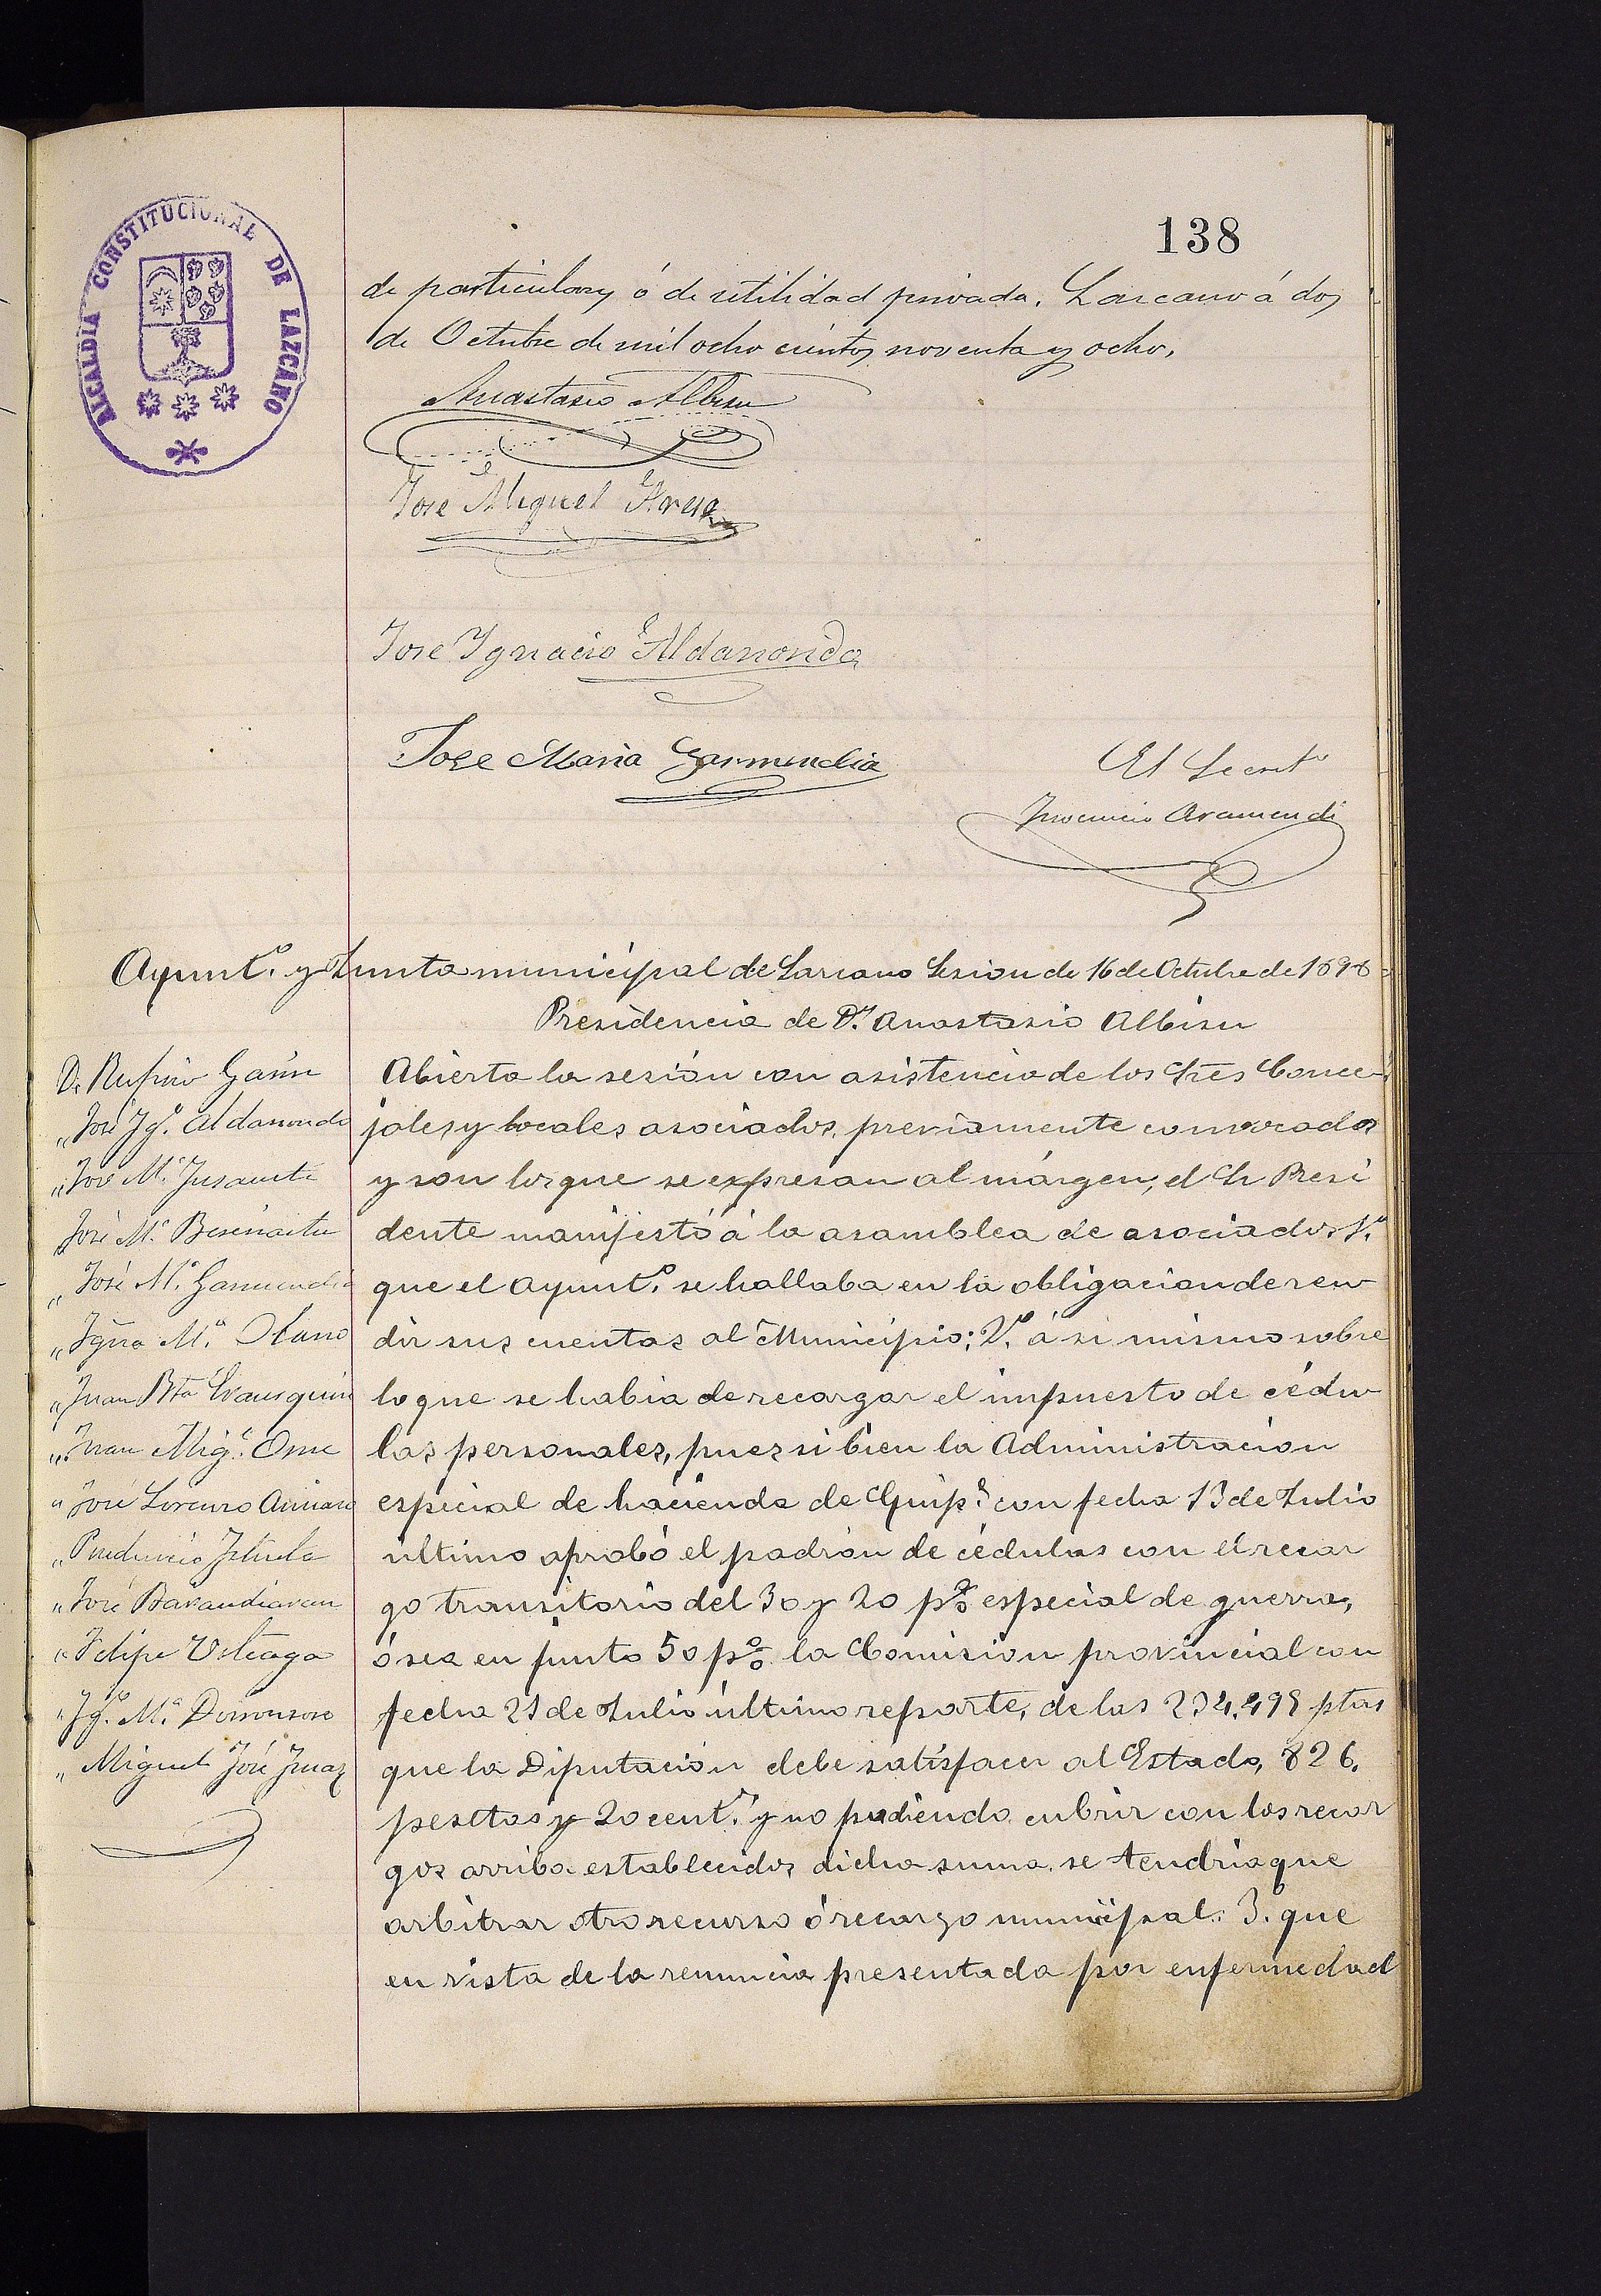 138
ALCALDIA CONSTITUCIONAL DE LAZCANO
de particulares ó de utilidad privada. Lazcano á dos
de Octubre de mil ocho cientos noventa y ocho.
Anastasio Albisu
José Miguel
Jose Ygnacio Aldanondo
Jose Maria Garmendia
El Secret.º
Inocencio Aramendi
Ayunt.º y Junta municipal de Lazcano Sesion de 16 de Octubre de 1898
Presidencia de D.n Anastasio Albisu
D. Rufino Garin
„ José Ig.º Aldanondo
„ José M.ª Insausti
José M.ª Beseinaitu
„ José M.ª Garmendia
„ Ygno M.ª Olano
„ Juan Bta Irausquin
„ Juan Mig.l
„ José Lorenzo
„ Prudencio Iztueta
„ José Barandiaran
„ Felipe Usteaga
„ Ig.º M.ª Dorronsoro
„ Miguel José Imaz
Abierta la sesión con asistencia de los Sres Conce-
jales y Vocales asociados, previamente convocados
y son los que se expresan al márgen, el Sr Presi
dente manifestó á la asamblea de asociados 1.º
que el Ayunt.º se hallaba en la obligacion de ren-
dir sus cuentas al Municipio: 2.º á si mismo sobre
lo que se habia de recargar el impuesto de cédu-
las personales, pues si bien la Administración
especial de hacienda de Guip.ª con fecha 13 de Julio
último aprobó el padrón de cédulas con el recar
go transitorio del 30 y 20 p% especial de guerra,
ó sea en junto 50 p% la Comision provincial con
fecha 21 de Julio último reparte, de las 234,498 ptas
que la Diputación debe satisfacer al Estado, 826.
pesetas y 20 cent.s y no pudiendo cubrir con los recar
gos arriba establecidos dicha suma se tendria que
arbitrar otro recurso ó recargo municipal: 3.º que
en vista de la renuncia presentada por enfermedad